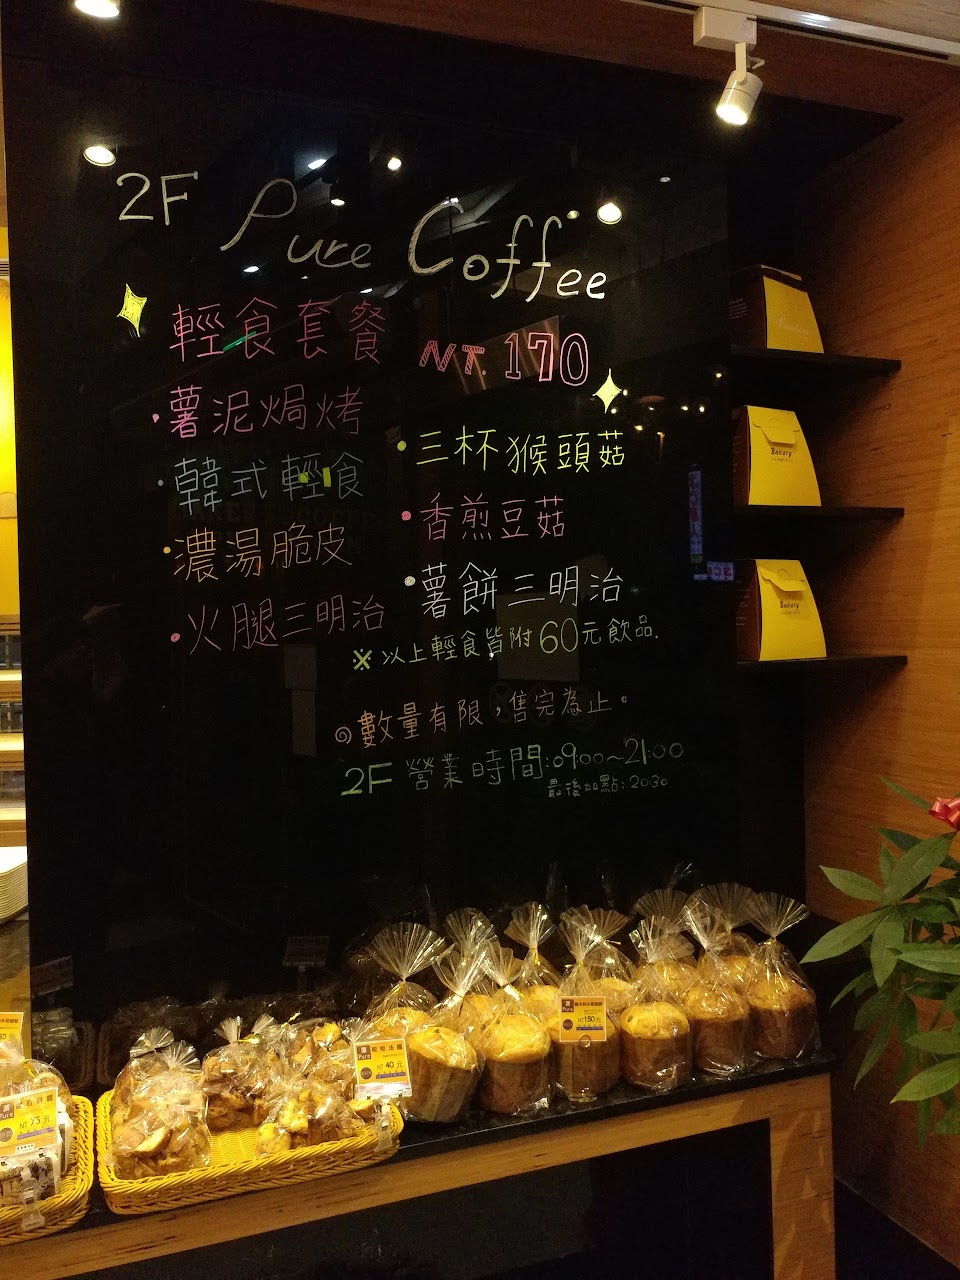 2F Pure Coffee
輕食套餐 NT. 170
・薯泥焗烤
・韓式輕食
・濃湯脆皮
・火腿三明治
・三杯猴頭菇
・香煎豆菇
・薯餅三明治
※以上輕食皆附60元飲品.
◎數量有限,售完為止。
2F 營業時間:09:00~21:00
最後加點:2030
Bakery
Bakery
Pure
NT 75元
Pure
NT 40元
Pure
NT 150元